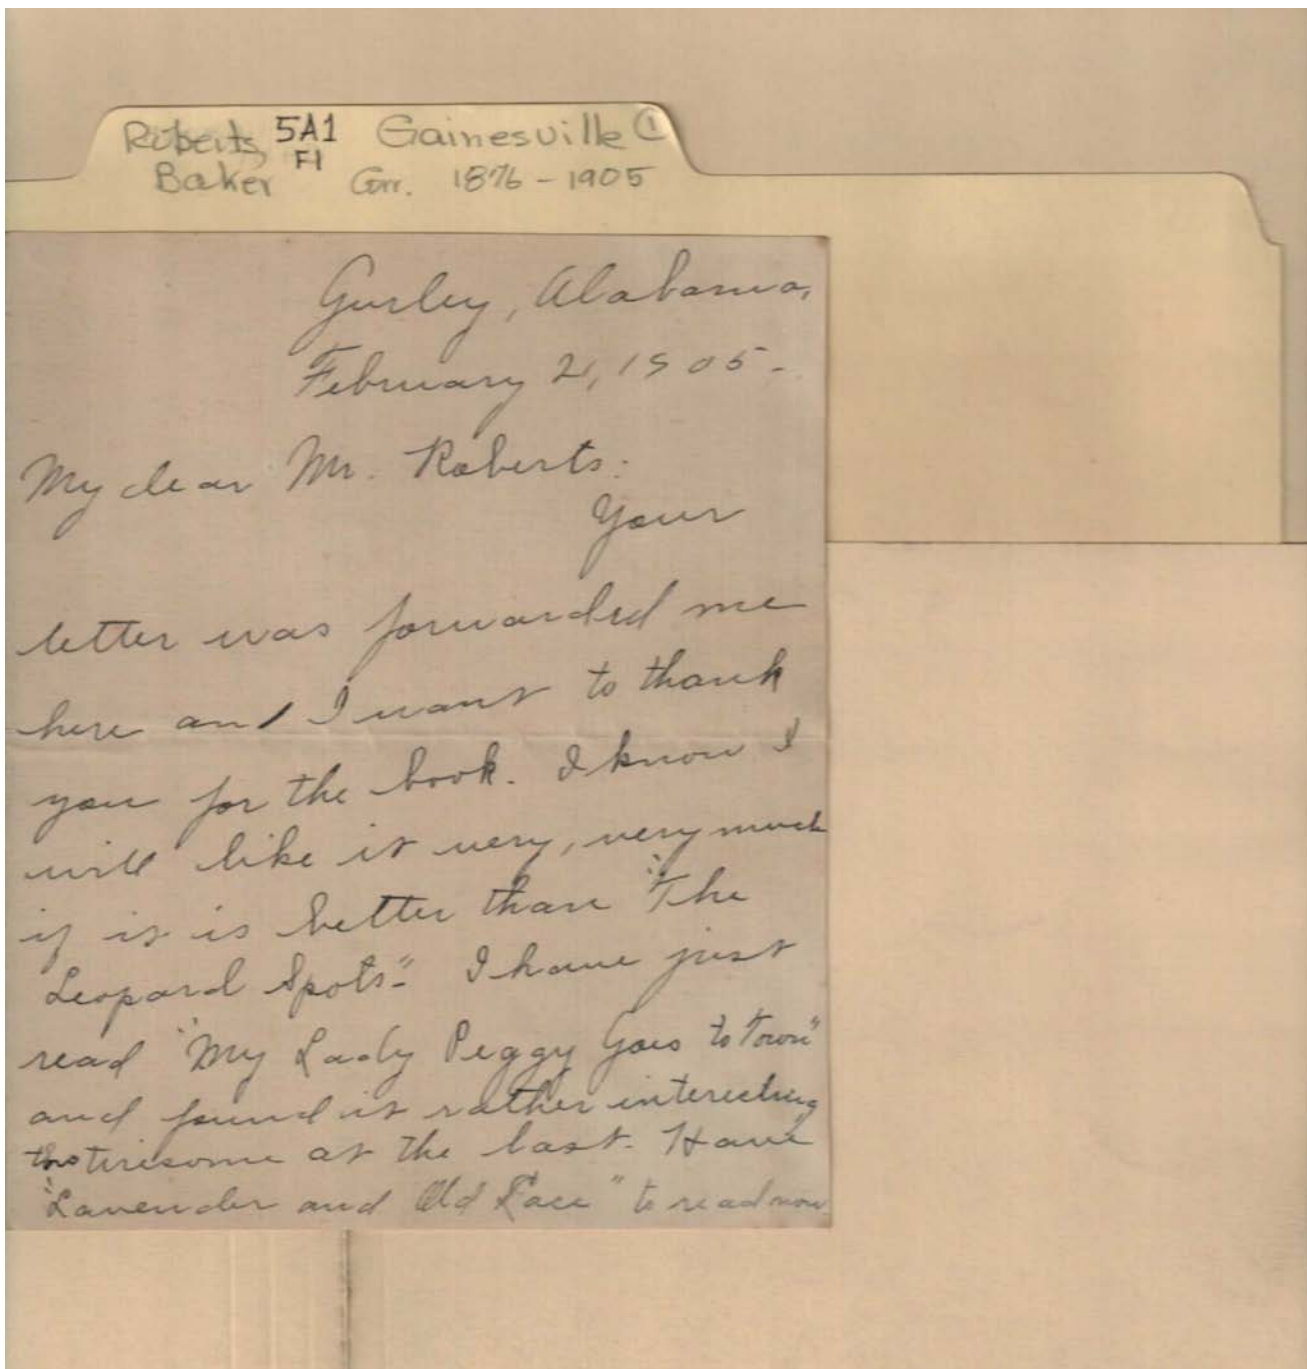 Roberts, 5A1 Gainesville 1
Baker F1 Grr. 1876-1905
Gurley, Alabama,
February 2, 1905-
My dear Mr. Roberts:
Your
letter was forwarded me
here and I want to thank
you for the book. I know I
will like it very, very much
if it is better than "The
Leopard Spots." I have just
read "My Lady Peggy Goes to Town"
and found it rather interesting
tho tiresome at the last. Have
"Lavender and Old Lace" to read now